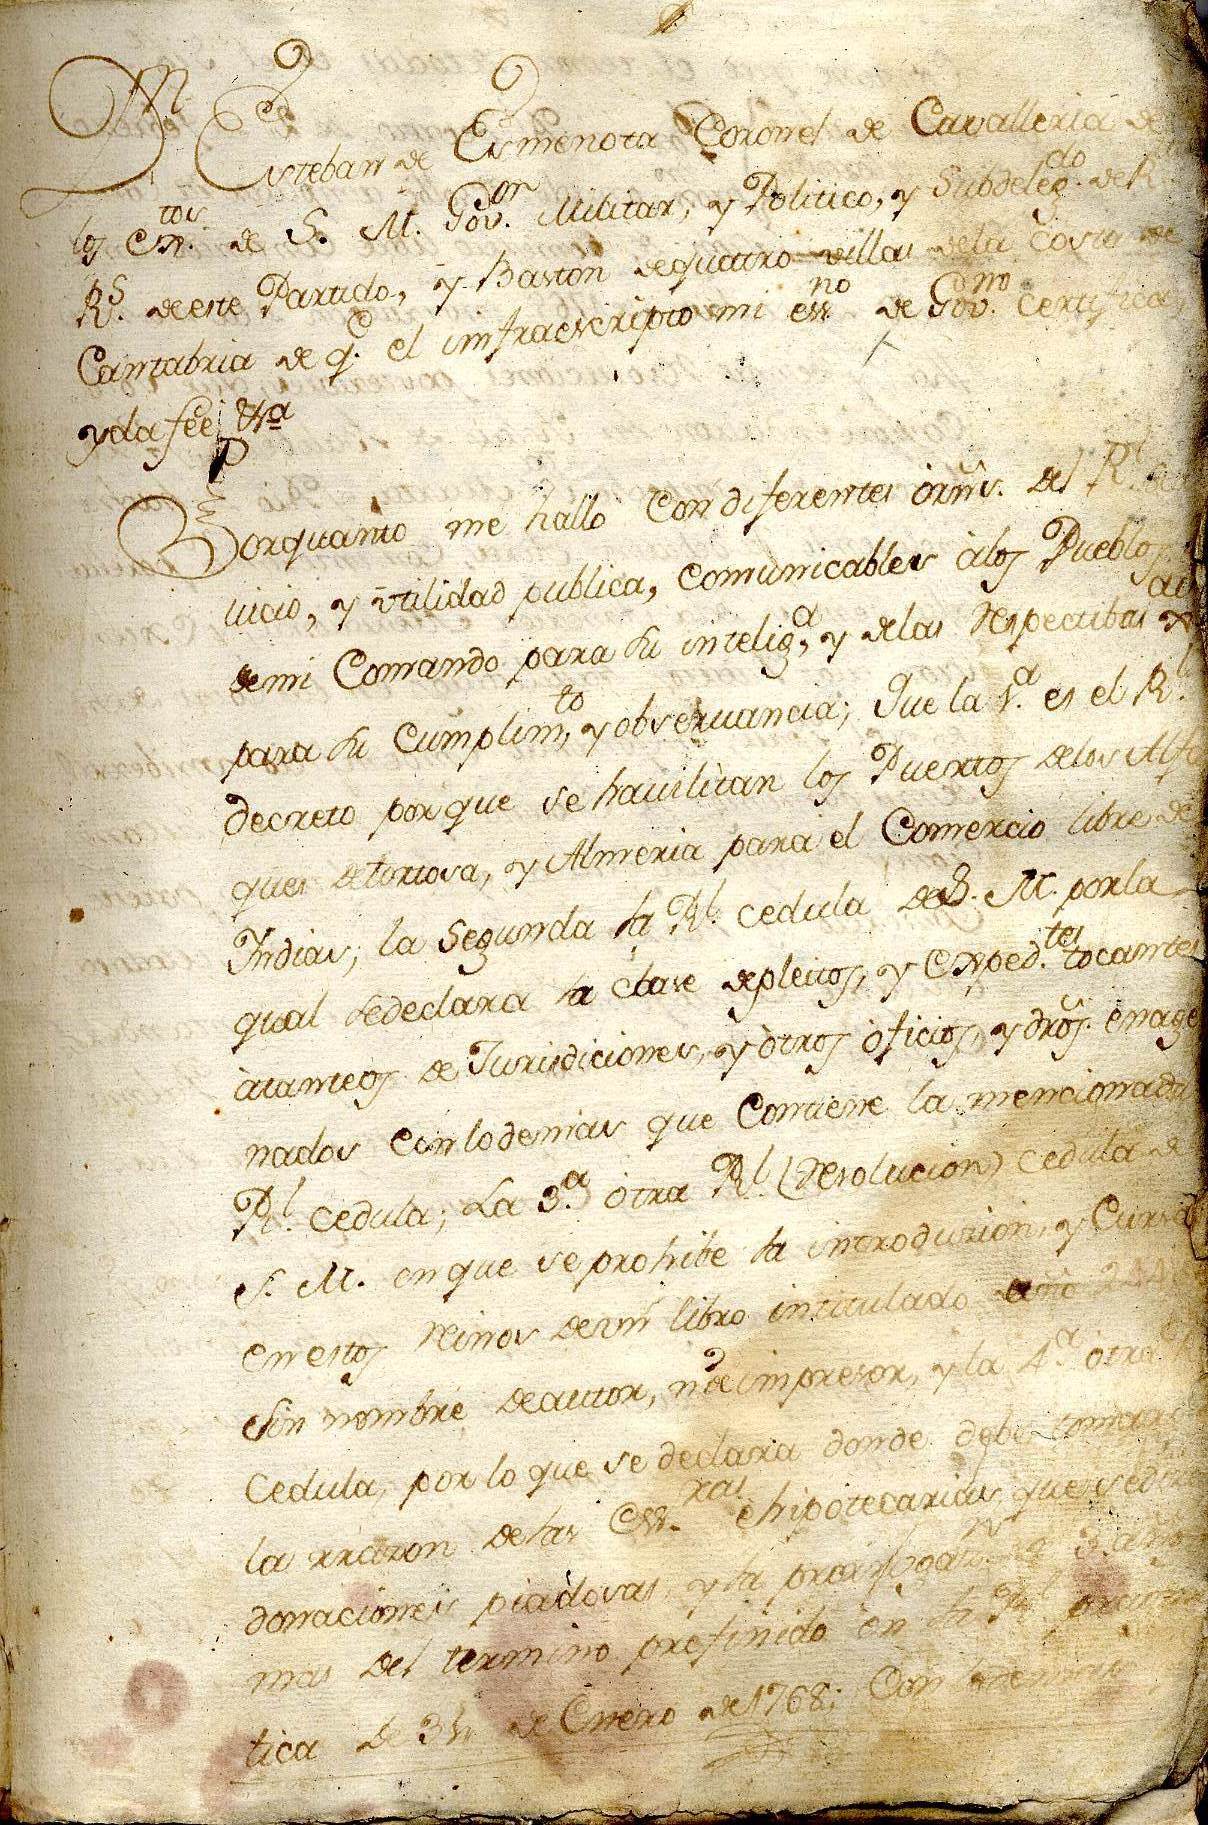 Dn Esteban de Esmenota Coronel de Cavalleria de
los Extos. de S. M. Govor. Militar, y Politico, y Subdelegdo. de R
Rs. de este Partido, y Baston de quatro villas de la Costa de
Cantabria de qe. el infraescripto mi essno de Govno. Certifica,
y da fee &a
Porquanto me hallo Con diferentes ôrns. del Rl.
vicio, y vtilidad publica, comunicables âlos Pueblos
de mi Comando para su inteliga, y delas respectibas
para su Cumplimto, y observancia; Que la 1a. es el Rl.
decreto por que se havilitan los Puertos delos Alfa
ques de tortosa, y Almeria para el Comercio libre de
Yndias; la Segunda la Rl. cedula de S. M. por la
qual se declara la clase de pleitos, y Expedtes. tocantes
âtanteos de Jurisdiciones, y ôtros ôficios, y dros. enage
nados con lo demas que Contiene la mencionada
Rl. cedula; La 3a. ôtra Rl. (resolucion) cedula de
S. M. en que se prohibe la introdusion, y Curso
en estos reinos de vn libro intitulado año 244
Sin nombre de autor, n de impresor, y la 4a ôtra
Cedula, por lo que se declara donde debe tomarse
la rrazon de las Essras. ê hipotecarias, que
donaciones piadosas, y la prorrogazn. de 3 año
mas del termino prefinido en la Rl. pracma
tica de 31 de Enero de 1768; Con lo demas